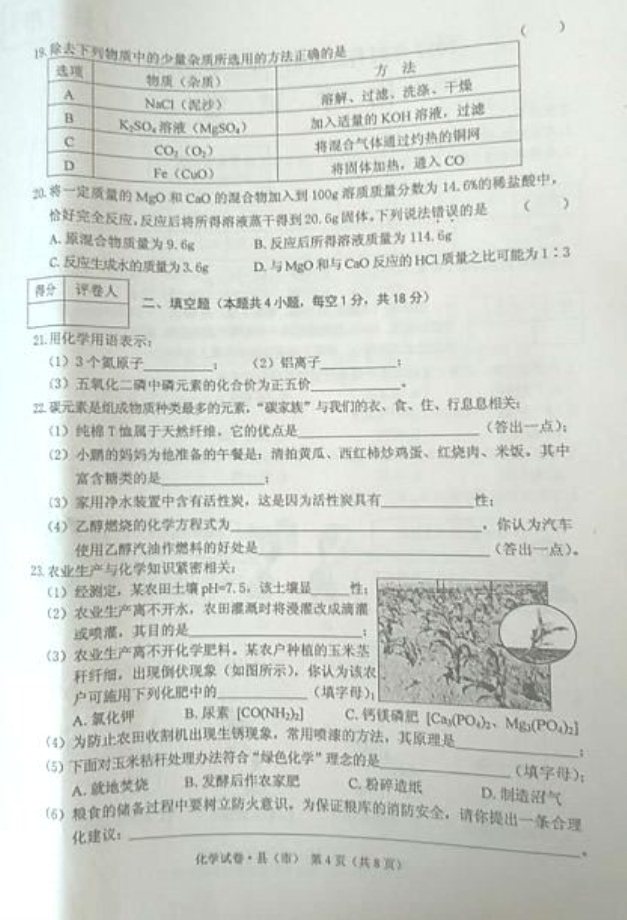 （　　）
19.除去下列物质中的少量杂质所选用的方法正确的是
选项 物质（杂质） 方　法
A NaCl（泥沙） 溶解、过滤、洗涤、干燥
B K₂SO₄溶液（MgSO₄） 加入适量的KOH溶液，过滤
C CO₂（O₂） 将混合气体通过灼热的铜网
D Fe（CuO） 将固体加热，通入CO
20.将一定质量的MgO和CaO的混合物加入到100g溶质质量分数为14.6%的稀盐酸中，
恰好完全反应，反应后将所得溶液蒸干得到20.6g固体。下列说法错误的是　（　　）
A.原混合物质量为9.6g　B.反应后所得溶液质量为114.6g
C.反应生成水的质量为3.6g　D.与MgO和与CaO反应的HCl质量之比可能为1∶3
得分 评卷人
二、填空题（本题共4小题，每空1分，共18分）
21.用化学用语表示：
（1）3个氮原子________；　（2）铝离子________；
（3）五氧化二磷中磷元素的化合价为正五价________。
22.碳元素是组成物质种类最多的元素，“碳家族”与我们的衣、食、住、行息息相关：
（1）纯棉T恤属于天然纤维，它的优点是________（答出一点）；
（2）小鹏的妈妈为他准备的午餐是：清拍黄瓜、西红柿炒鸡蛋、红烧肉、米饭。其中
富含糖类的是________；
（3）家用净水装置中含有活性炭，这是因为活性炭具有________性；
（4）乙醇燃烧的化学方程式为________，你认为汽车
使用乙醇汽油作燃料的好处是________（答出一点）。
23.农业生产与化学知识紧密相关：
（1）经测定，某农田土壤pH=7.5，该土壤显____性；
（2）农业生产离不开水，农田灌溉时将漫灌改成滴灌
或喷灌，其目的是________；
（3）农业生产离不开化学肥料。某农户种植的玉米茎
秆纤细，出现倒伏现象（如图所示），你认为该农
户可施用下列化肥中的________（填字母）；
A.氯化钾　B.尿素 [CO(NH₂)₂]　C.钙镁磷肥 [Ca₃(PO₄)₂、Mg₃(PO₄)₂]
（4）为防止农田收割机出现生锈现象，常用喷漆的方法，其原理是________；
（5）下面对玉米秸秆处理办法符合“绿色化学”理念的是________（填字母）；
A.就地焚烧　B.发酵后作农家肥　C.粉碎造纸　D.制造沼气
（6）粮食的储备过程中要树立防火意识，为保证粮库的消防安全，请你提出一条合理
化建议：________。
化学试卷·县（市）　第4页（共8页）